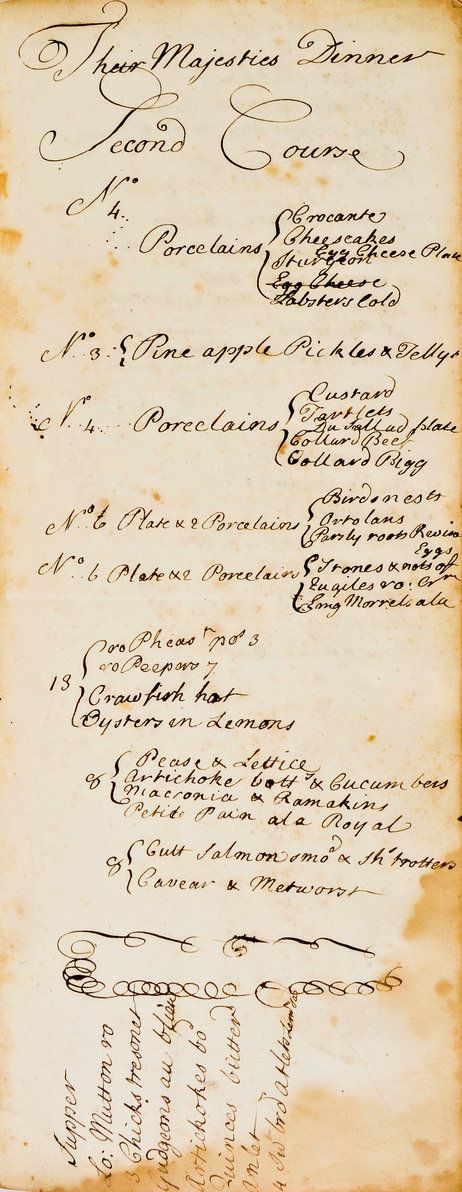 Their Majesties Dinner
Second Course
No 4 Porcelains
Crocante
Cheesecakes
Sturgeon Egg Cheese Plate
Egg Cheese
Lobsters Cold
No 3 Pine apple Pickles & Jellys
No 4 Porcelains
Custard
Tartlets
Du Sallad plate
Collard Beef
Collard Pigg
No 6 Plate & 2 Porcelains
Birds nests
Ortolans
Parsly roots
Eggs
No 6 Plate & 2 Porcelain
Stones & nots of
ro:
Morrels ala
13
ro Pheast po: 3
ro Peepers 7
Crawfish hot
Oysters in Lemons
8
Pease & Lettice
Artichoke botts & Cucumbers
Macronia & Ramakins
Petite Pain ala Royal
8
Cutt Salmon smo & shs trotters
Cavear & Metworst
Supper
Lo: Mutton ro
3 Chicks
Gudgeons au
Artichokes bo
Quinces butter
4